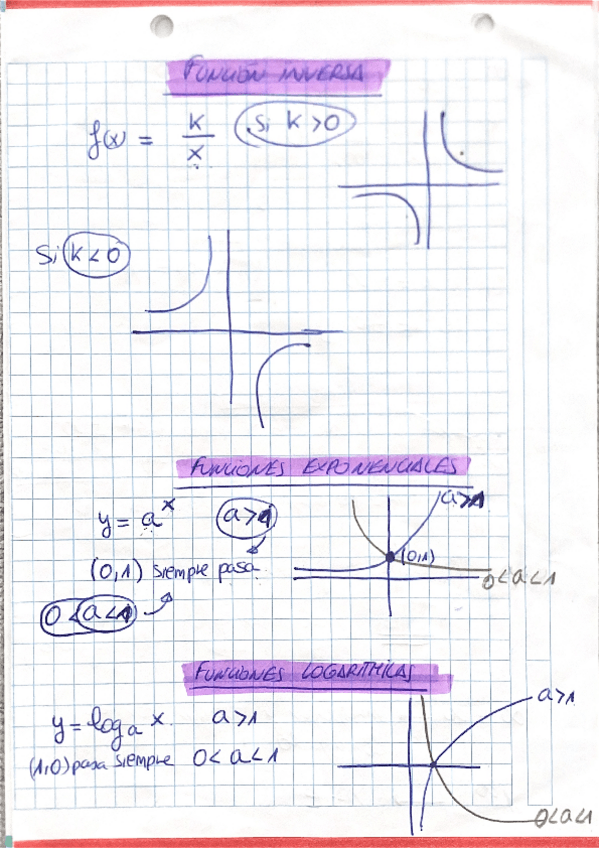 FUNCIÓN INVERSA
f(x) = k/x Si k>0
Si k<0
FUNCIONES EXPONENCIALES
y = a^x a>1 a>1
(0,1)
(0,1) siempre pasa 0<a<1
0<a<1
FUNCIONES LOGARITMICAS
y = log_a x. a>1 a>1
(1,0) pasa siempre 0<a<1
0<a<1